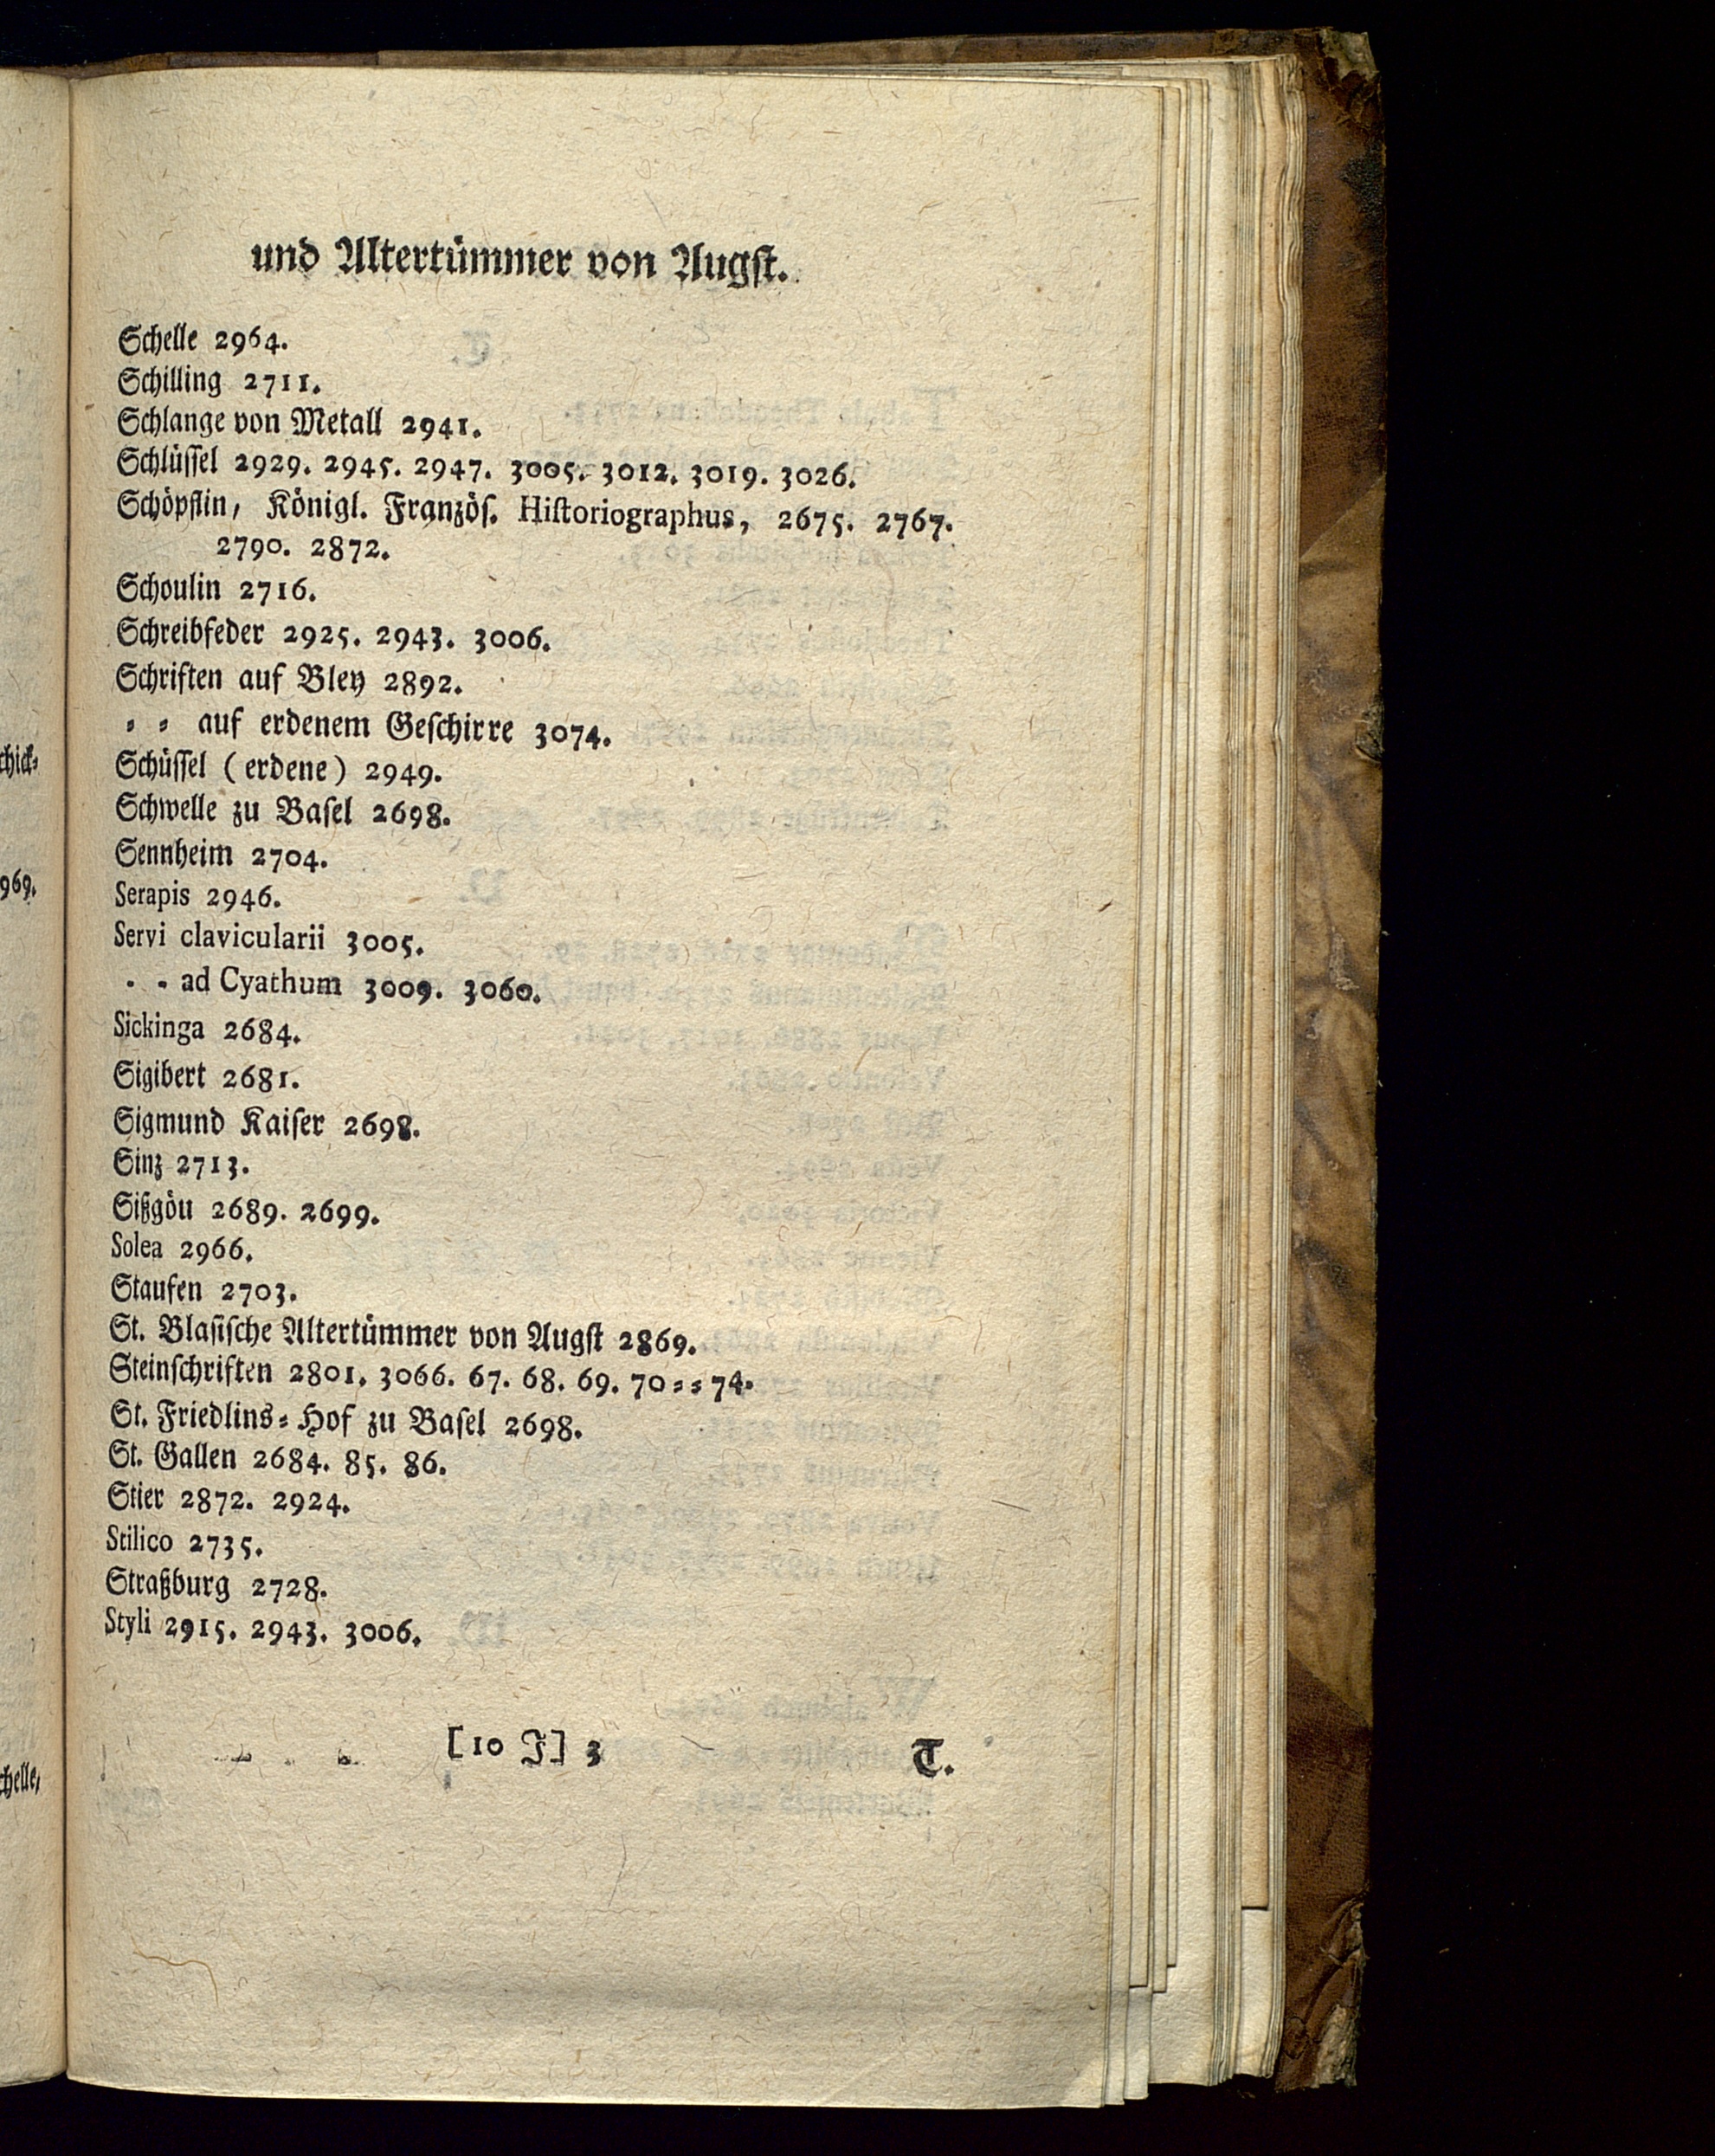 und Altertümmer von Augſt.
Schelle 2964.
Schilling 2711.
Schlange von Metall 2941.
Schlüſſel 2929. 2945. 2947. 3005. 3012. 3019. 3026.
Schöpflin, Königl. Französ. Hiſtoriographus, 2675. 2767.
2790. 2872.
Schoulin 2716.
Schreibfeder 2925. 2943. 3006.
Schriften auf Bley 2892.
⸗ ⸗ auf erdenem Geſchirre 3074.
Schüſſel (erdene) 2949.
Schwelle zu Baſel 2698.
Sennheim 2704.
Serapis 2946.
Servi clavicularii 3005.
- - ad Cyathum 3009. 3060.
Sickinga 2684.
Sigibert 2681.
Sigmund Kaiſer 2698.
Sinz 2713.
Sißgöu 2689. 2699.
Solea 2966.
Staufen 2703.
St. Blaſiſche Altertümmer von Augſt 2869.
Steinſchriften 2801. 3066. 67. 68. 69. 70⸗⸗74.
St. Friedlins⸗Hof zu Baſel 2698.
St. Gallen 2684. 85. 86.
Stier 2872. 2924.
Stilico 2735.
Straßburg 2728.
Styli 2915. 2943. 3006.
[10 J] 3
T.